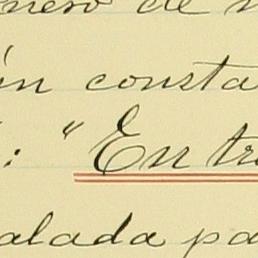 nero de n
ín consta
: "En tra
alada pa